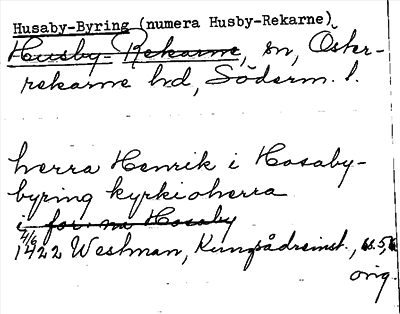 Husaby-Byring (numera Husby-Rekarne)
Husby-Rekarne, sn, Öster-
rekarne hd, Söderm. l.
herra Henrik i Hosaby-
byring kyrkioherra
i for:na Hosaby
4/6
1422 Westman, Kungsådreinst., s. 5,
orig.